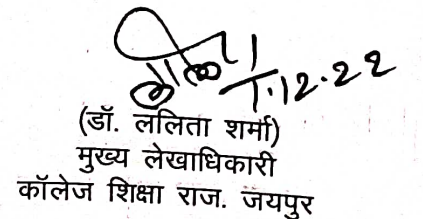 7.12.22
(डॉ. ललिता शर्मा)
मुख्य लेखाधिकारी
कॉलेज शिक्षा राज. जयपुर